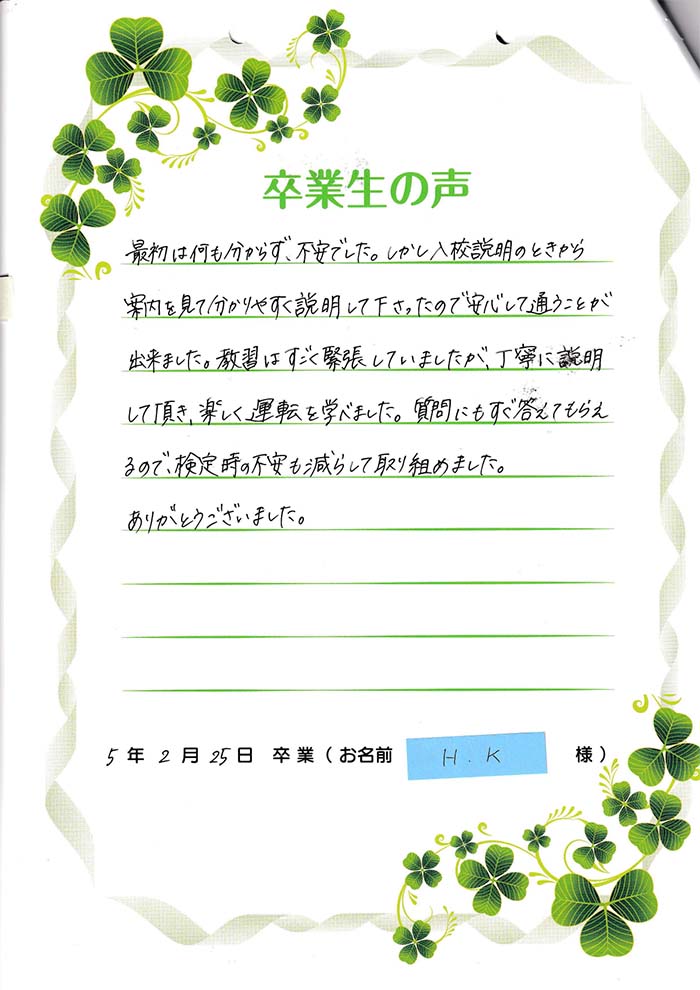 卒業生の声
最初は何も分からず、不安でした。しかし入校説明のときから
案内を見て分かりやすく説明して下さったので安心して通うことが
出来ました。教習はすごく緊張していましたが、丁寧に説明
して頂き、楽しく運転を学べました。質問にもすぐ答えてもらえ
るので、検定時の不安も減らして取り組めました。
ありがとうございました。
5年2月25日 卒業(お名前 H.K 様)